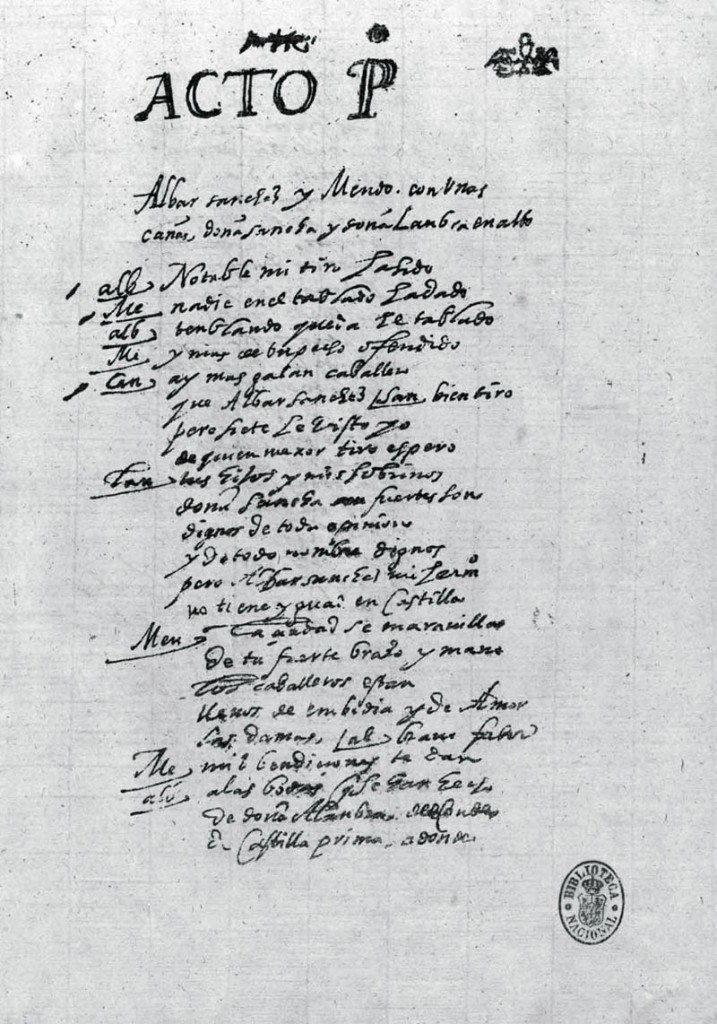 ACTO P
Albar sanchez y Mendo. con Unas
cañas, doña sancha y doña Lanbra en alto
alb Notable mi tiro ha sido
Me nadie en el tablado ha dado
alb tenblando queda el tablado
Me y mas de tu pecho ofendido
San ay mas galan caballero
que Albar sanchez Lan bien tiro
pero siete he visto yo
de quien mexor tiro espero
Lan tus hijos y mis sobrinos
doña sancha fuertes son
dignos de toda opinion
y de todo nombre dignos
pero Albar sanchez mi
no tiene ygual en Castilla
Men La ciudad se maravilla
de tu fuerte brazo y mano
los caballeros estan
llenos de embidia y de Amor
las damas, alb bravo favor
Me mil bendiciones te dan
alb a las bodas que se han hecho
de doña Alanbra, del Conde
de Castilla prima, adonde
BIBLIOTECA NACIONAL